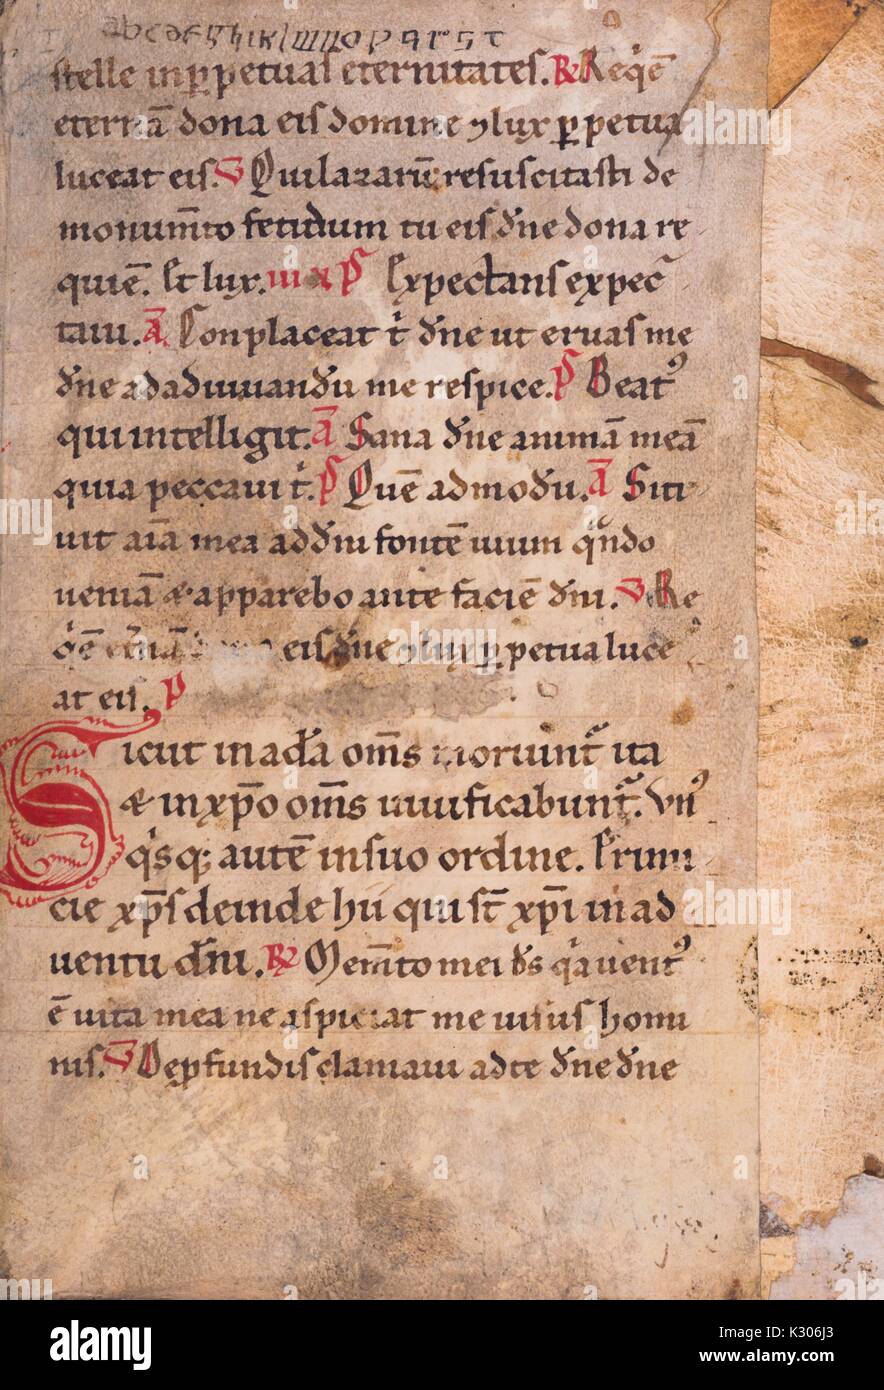 abcdefghiklmnopqrst
stelle in ꝑpetuas eternitates. ℟ Reqⁱē
eternā dona eis domine ⁊ lux ꝑpetua
luceat eis. ℣ Qui lazarū resuscitasti de
monum̄to fetidum tu eis dn̄e dona re
quiē. Et lux. iii x p̄s Expectans expec
taui. a̅ Conplaceat t̄ dn̄e ut eruas me
dn̄e ad adiuuandū me respice. p̄s Beatꝰ
qui intelligit. a̅ Sana dn̄e animā meā
quia peccaui t̄. p̄s Quē admodū. a̅ Siti
uit aīa mea ad dm̄ fontē uiuum qn̄do
ueniā & apparebo ante faciē dn̄i. ℣ Re
qⁱē et̄nā eis dn̄e ⁊ lux ꝑpetua luce
at eis. p
Sicut in adā om̄s moriuntᷣ ita
& in xp̄o om̄s uiuificabuntᷣ. Vnꝰ
qⁱsq; autē in suo ordine. Primi
cie xp̄s deinde hii qui st̄ xp̄i in ad
uentu dn̄i. ℟ Mem̄to mei ds̄ qᵃ uentꝰ
ē uita mea ne aspiciat me uisus homi
nis. ℣ De ꝓfundis clamaui ad te dn̄e dn̄e
alamy
Image ID: K306J3
www.alamy.com